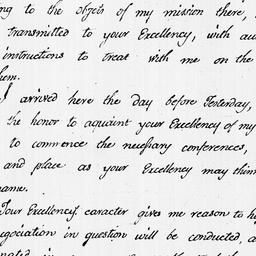 ng to the objets of my mission there,
transmitted to your Excellency, with au
instructions to treat with me on the
hem.
I arrived here the day before Yesterday,
the honor to aquaint your Excellency of my
to commence the necessary conferences,
and place as your Excellency may thin
name.
Your Excellency's caracter gives me reason to h
egociation in question will be conducted, a